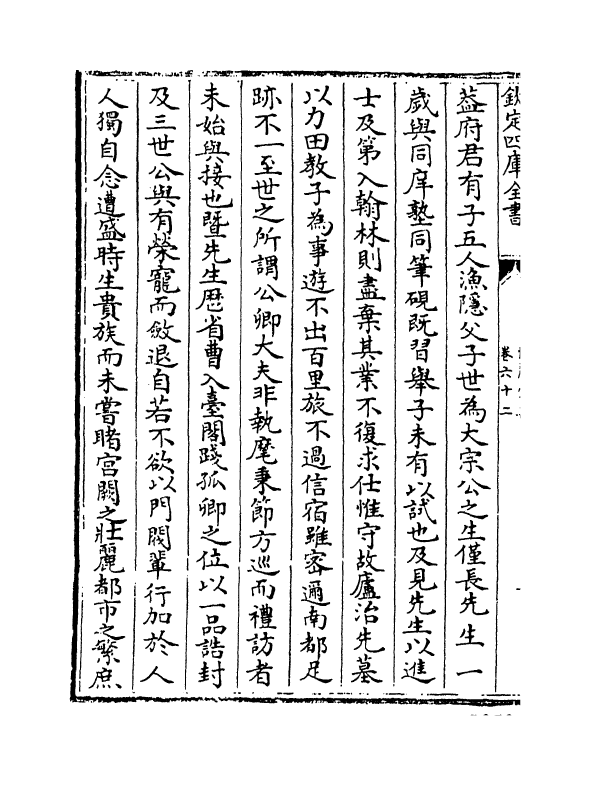 欽定四庫全書
卷六十二
葢府君有子五人漁隱父子世為大宗公之生僅長先生一
歲與同庠塾同筆硯既習舉子未有以試也及見先生以進
士及第入翰林則盡棄其業不復求仕惟守故廬治先墓
以力田教子為事遊不出百里旅不過信宿雖密邇南都足
跡不一至世之所謂公卿大夫非執麾秉節方巡而禮訪者
未始與接也暨先生歴省曹入臺閣踐孤卿之位以一品誥封
及三世公與有榮寵而斂退自若不欲以門閥輩行加於人
人獨自念遭盛時生貴族而未嘗睹宮闕之壯麗都市之繁庶